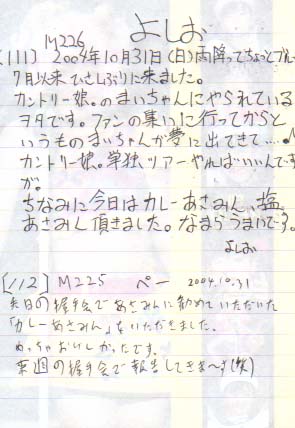 M226 よしお
(111) 2004年10月31日(日)雨降ってちょっとブルー
7月以来ひさしぶりに来ました。
カントリー娘。のまいちゃんにやられている
ヲタです。ファンの集いに行ってからと
いうものまいちゃんが夢に出てきて……♪
カントリー娘。単独ツアーやればいいんです
が。
ちなみに今日はカレーあさみん、塩
あさみん頂きました。なまらうまいです。
よしお
[112] M225 ぺー 2004.10.31
先日の握手会であさみんに勧めていただいた
「カレーあさみん」をいただきました。
めっちゃおいしかったです。
来週の握手会で報告してきまーす(笑)